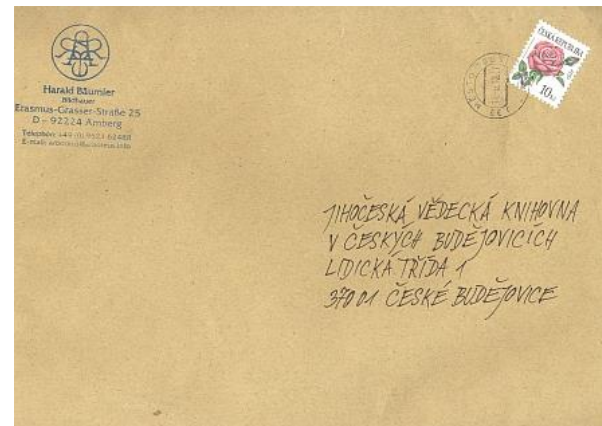 Harald Bäumler
Bildhauer
Erasmus-Grasser-Straße 25
D - 92224 Amberg
Telephon: +49
E-mail:
ČESKÁ REPUBLIKA
10 Kč
JIHOČESKÁ VĚDECKÁ KNIHOVNA
V ČESKÝCH BUDĚJOVICÍCH
LIDICKÁ TŘÍDA 1
370 01 ČESKÉ BUDĚJOVICE